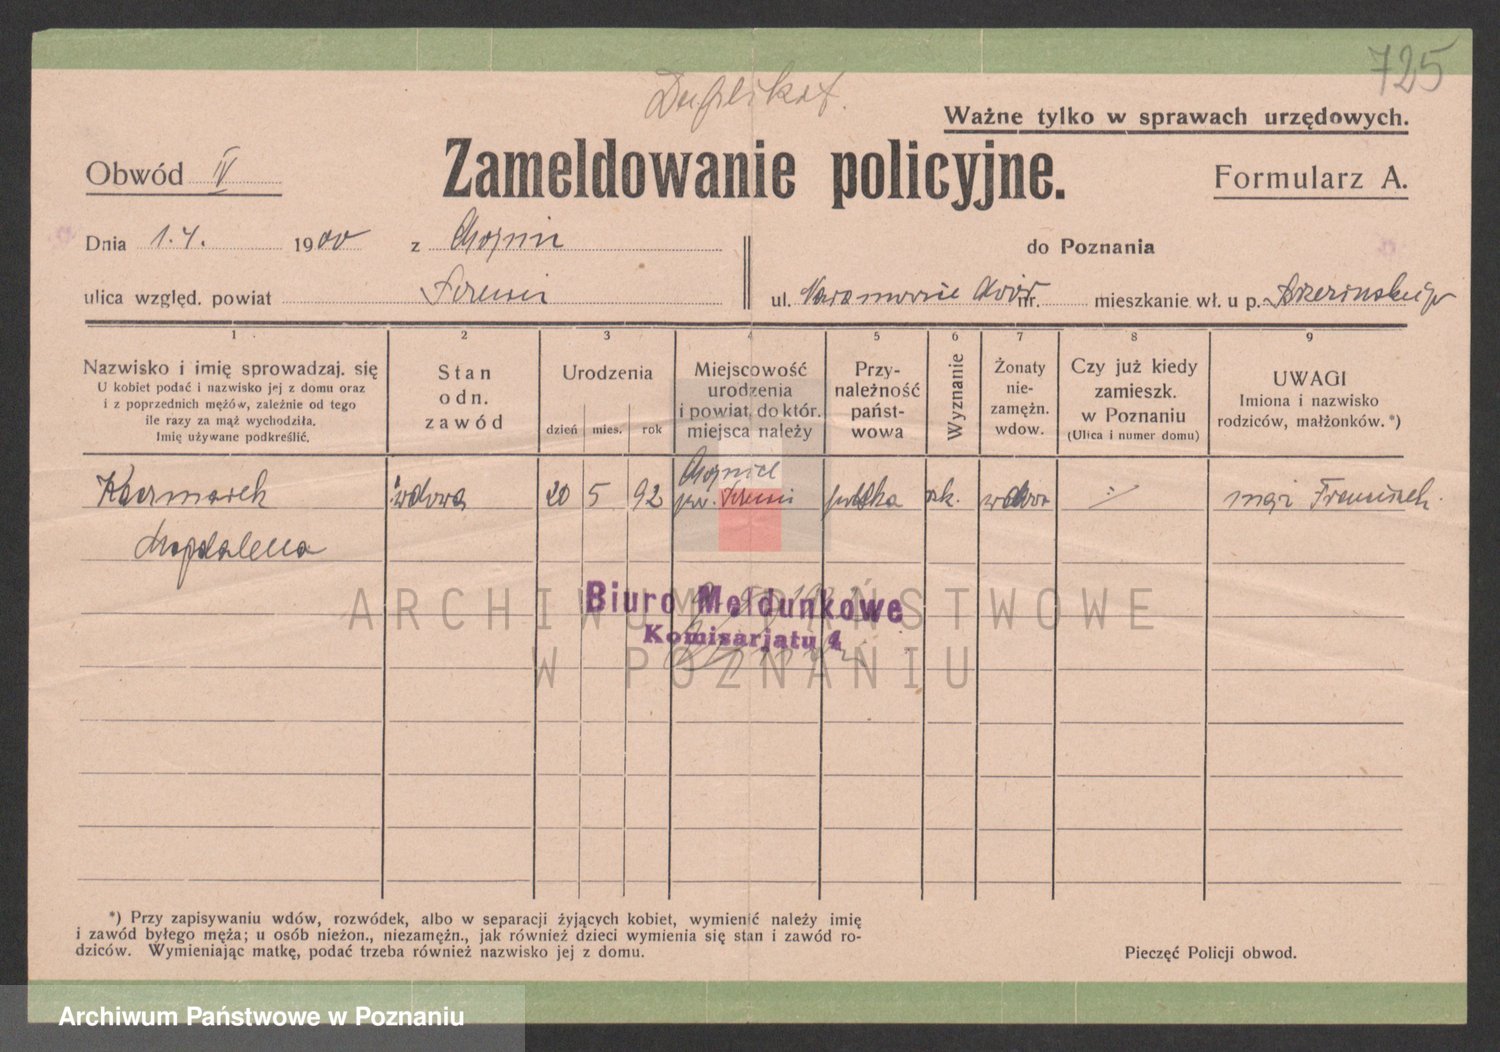 725
Duplikat.
Ważne tylko w sprawach urzędowych.
Obwód IV
Zameldowanie policyjne.
Formularz A.
Dnia 1.4. 1900 z
do Poznania
ulica względ. powiat
ul. nr. mieszkanie wł. u p.
1 2 3 4 5 6 7 8 9
Nazwisko i imię sprowadzaj. się
U kobiet podać i nazwisko jej z domu oraz
i z poprzednich mężów, zależnie od tego
ile razy za mąż wychodziła.
Imię używane podkreślić.
Stan
odn.
zawód
Urodzenia
dzień mies. rok
Miejscowość
urodzenia
i powiat, do któr.
miejsca należy
Przy-
należność
pańsť-
wowa
Wyznanie
Żonaty
nie-
zamężn.
wdow.
Czy już kiedy
zamieszk.
w Poznaniu
(Ulica i numer domu)
UWAGI
Imiona i nazwisko
rodziców, małżonków. *)
Kaczmarek wdowa 20 5 92 polska rk. wdowa mąż Franciszek.
Magdalena
ARCHIWUM PAŃSTWOWE
W POZNANIU
Biuro Meldunkowe
Komisarjatu 4
*) Przy zapisywaniu wdów, rozwódek, albo w separacji żyjących kobiet, wymienić należy imię
i zawód byłego męża; u osób nieżon., niezamężn., jak również dzieci wymienia się stan i zawód ro-
dziców. Wymieniając matkę, podać trzeba również nazwisko jej z domu.
Pieczęć Policji obwod.
Archiwum Państwowe w Poznaniu